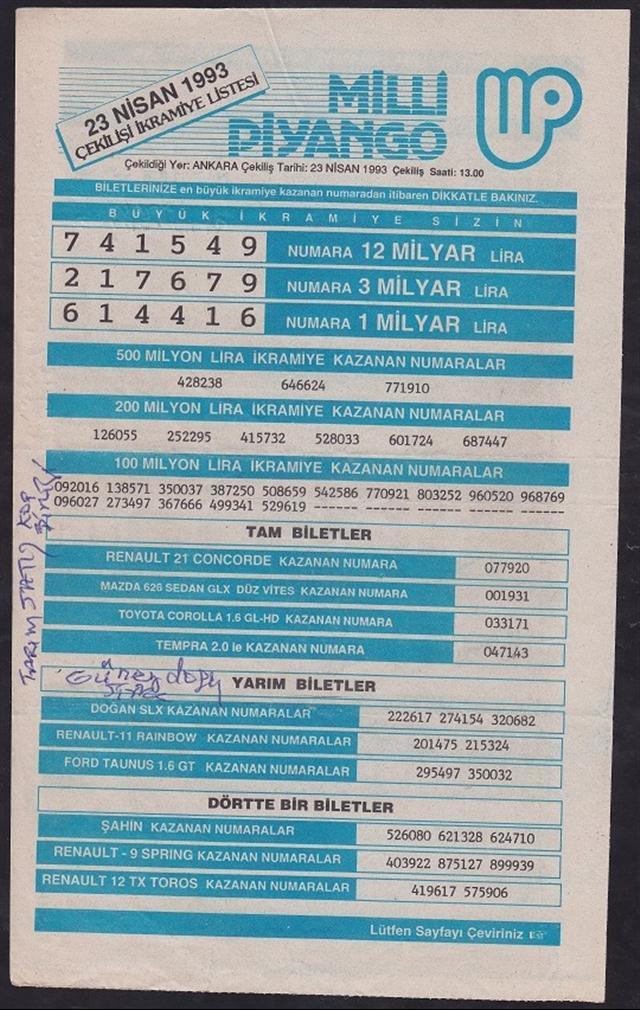 23 NİSAN 1993
ÇEKİLİŞİ İKRAMİYE LİSTESİ
MİLLİ
PİYANGO
Çekildiği Yer: ANKARA Çekiliş Tarihi: 23 NİSAN 1993 Çekiliş Saati: 13.00
BİLETLERİNİZE en büyük ikramiye kazanan numaradan itibaren DİKKATLE BAKINIZ.
BÜYÜK İKRAMİYE SİZİN
741549 NUMARA 12 MİLYAR LİRA
217679 NUMARA 3 MİLYAR LİRA
614416 NUMARA 1 MİLYAR LİRA
500 MİLYON LİRA İKRAMİYE KAZANAN NUMARALAR
428238 646624 771910
200 MİLYON LİRA İKRAMİYE KAZANAN NUMARALAR
126055 252295 415732 528033 601724 687447
100 MİLYON LİRA İKRAMİYE KAZANAN NUMARALAR
092016 138571 350037 387250 508659 542586 770921 803252 960520 968769
096027 273497 367666 499341 529619 ------ ------ ------ ------ ------
TAM BİLETLER
RENAULT 21 CONCORDE KAZANAN NUMARA 077920
MAZDA 626 SEDAN GLX DÜZ VİTES KAZANAN NUMARA 001931
TOYOTA COROLLA 1.6 GL-HD KAZANAN NUMARA 033171
TEMPRA 2.0 ie KAZANAN NUMARA 047143
YARIM BİLETLER
DOĞAN SLX KAZANAN NUMARALAR 222617 274154 320682
RENAULT-11 RAINBOW KAZANAN NUMARALAR 201475 215324
FORD TAUNUS 1.6 GT KAZANAN NUMARALAR 295497 350032
DÖRTTE BİR BİLETLER
ŞAHİN KAZANAN NUMARALAR 526080 621328 624710
RENAULT - 9 SPRING KAZANAN NUMARALAR 403922 875127 899939
RENAULT 12 TX TOROS KAZANAN NUMARALAR 419617 575906
Lütfen Sayfayı Çeviriniz
TARIM